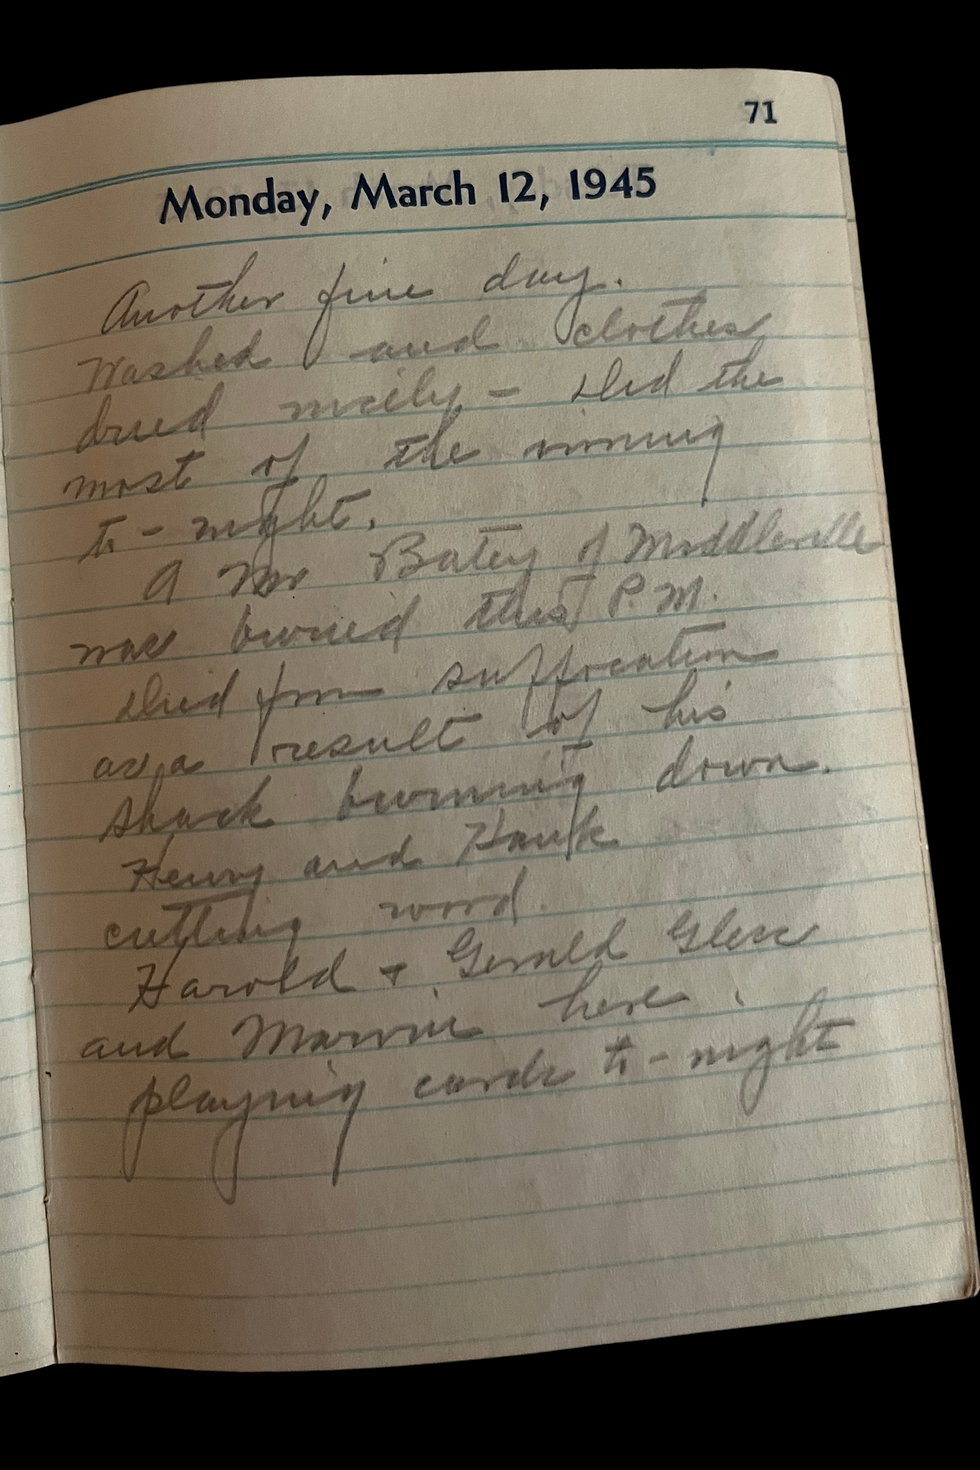 71
Monday, March 12, 1945
Another fine day.
Washed and clothes
dried nicely - did the
most of the ironing
to-night.
A Mr Batey of Middleville
was buried this P.M.
died from suffocation
as a result of his
shack burning down.
Henry and Hank
cutting wood.
Harold + Gerald
and Marvin here
playing cards to-night